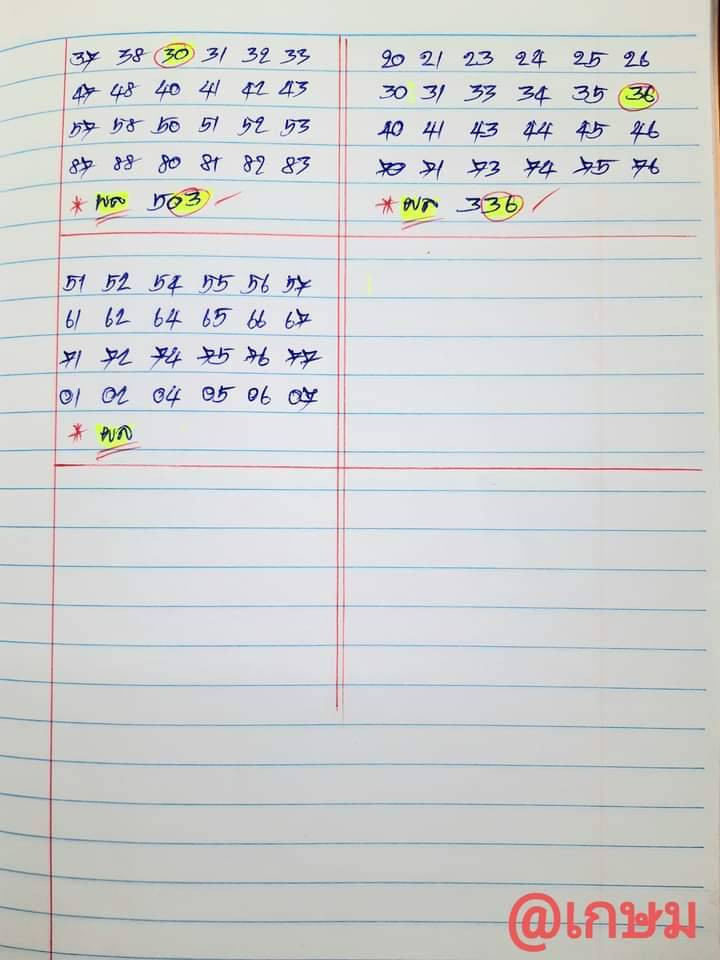 37 38 30 31 32 33
47 48 40 41 42 43
57 58 50 51 52 53
87 88 80 81 82 83
* ผล 503
20 21 23 24 25 26
30 31 33 34 35 36
40 41 43 44 45 46
70 71 73 74 75 76
* ผล 336
51 52 54 55 56 57
61 62 64 65 66 67
71 72 74 75 76 77
01 02 04 05 06 07
* ผล
@เกษม